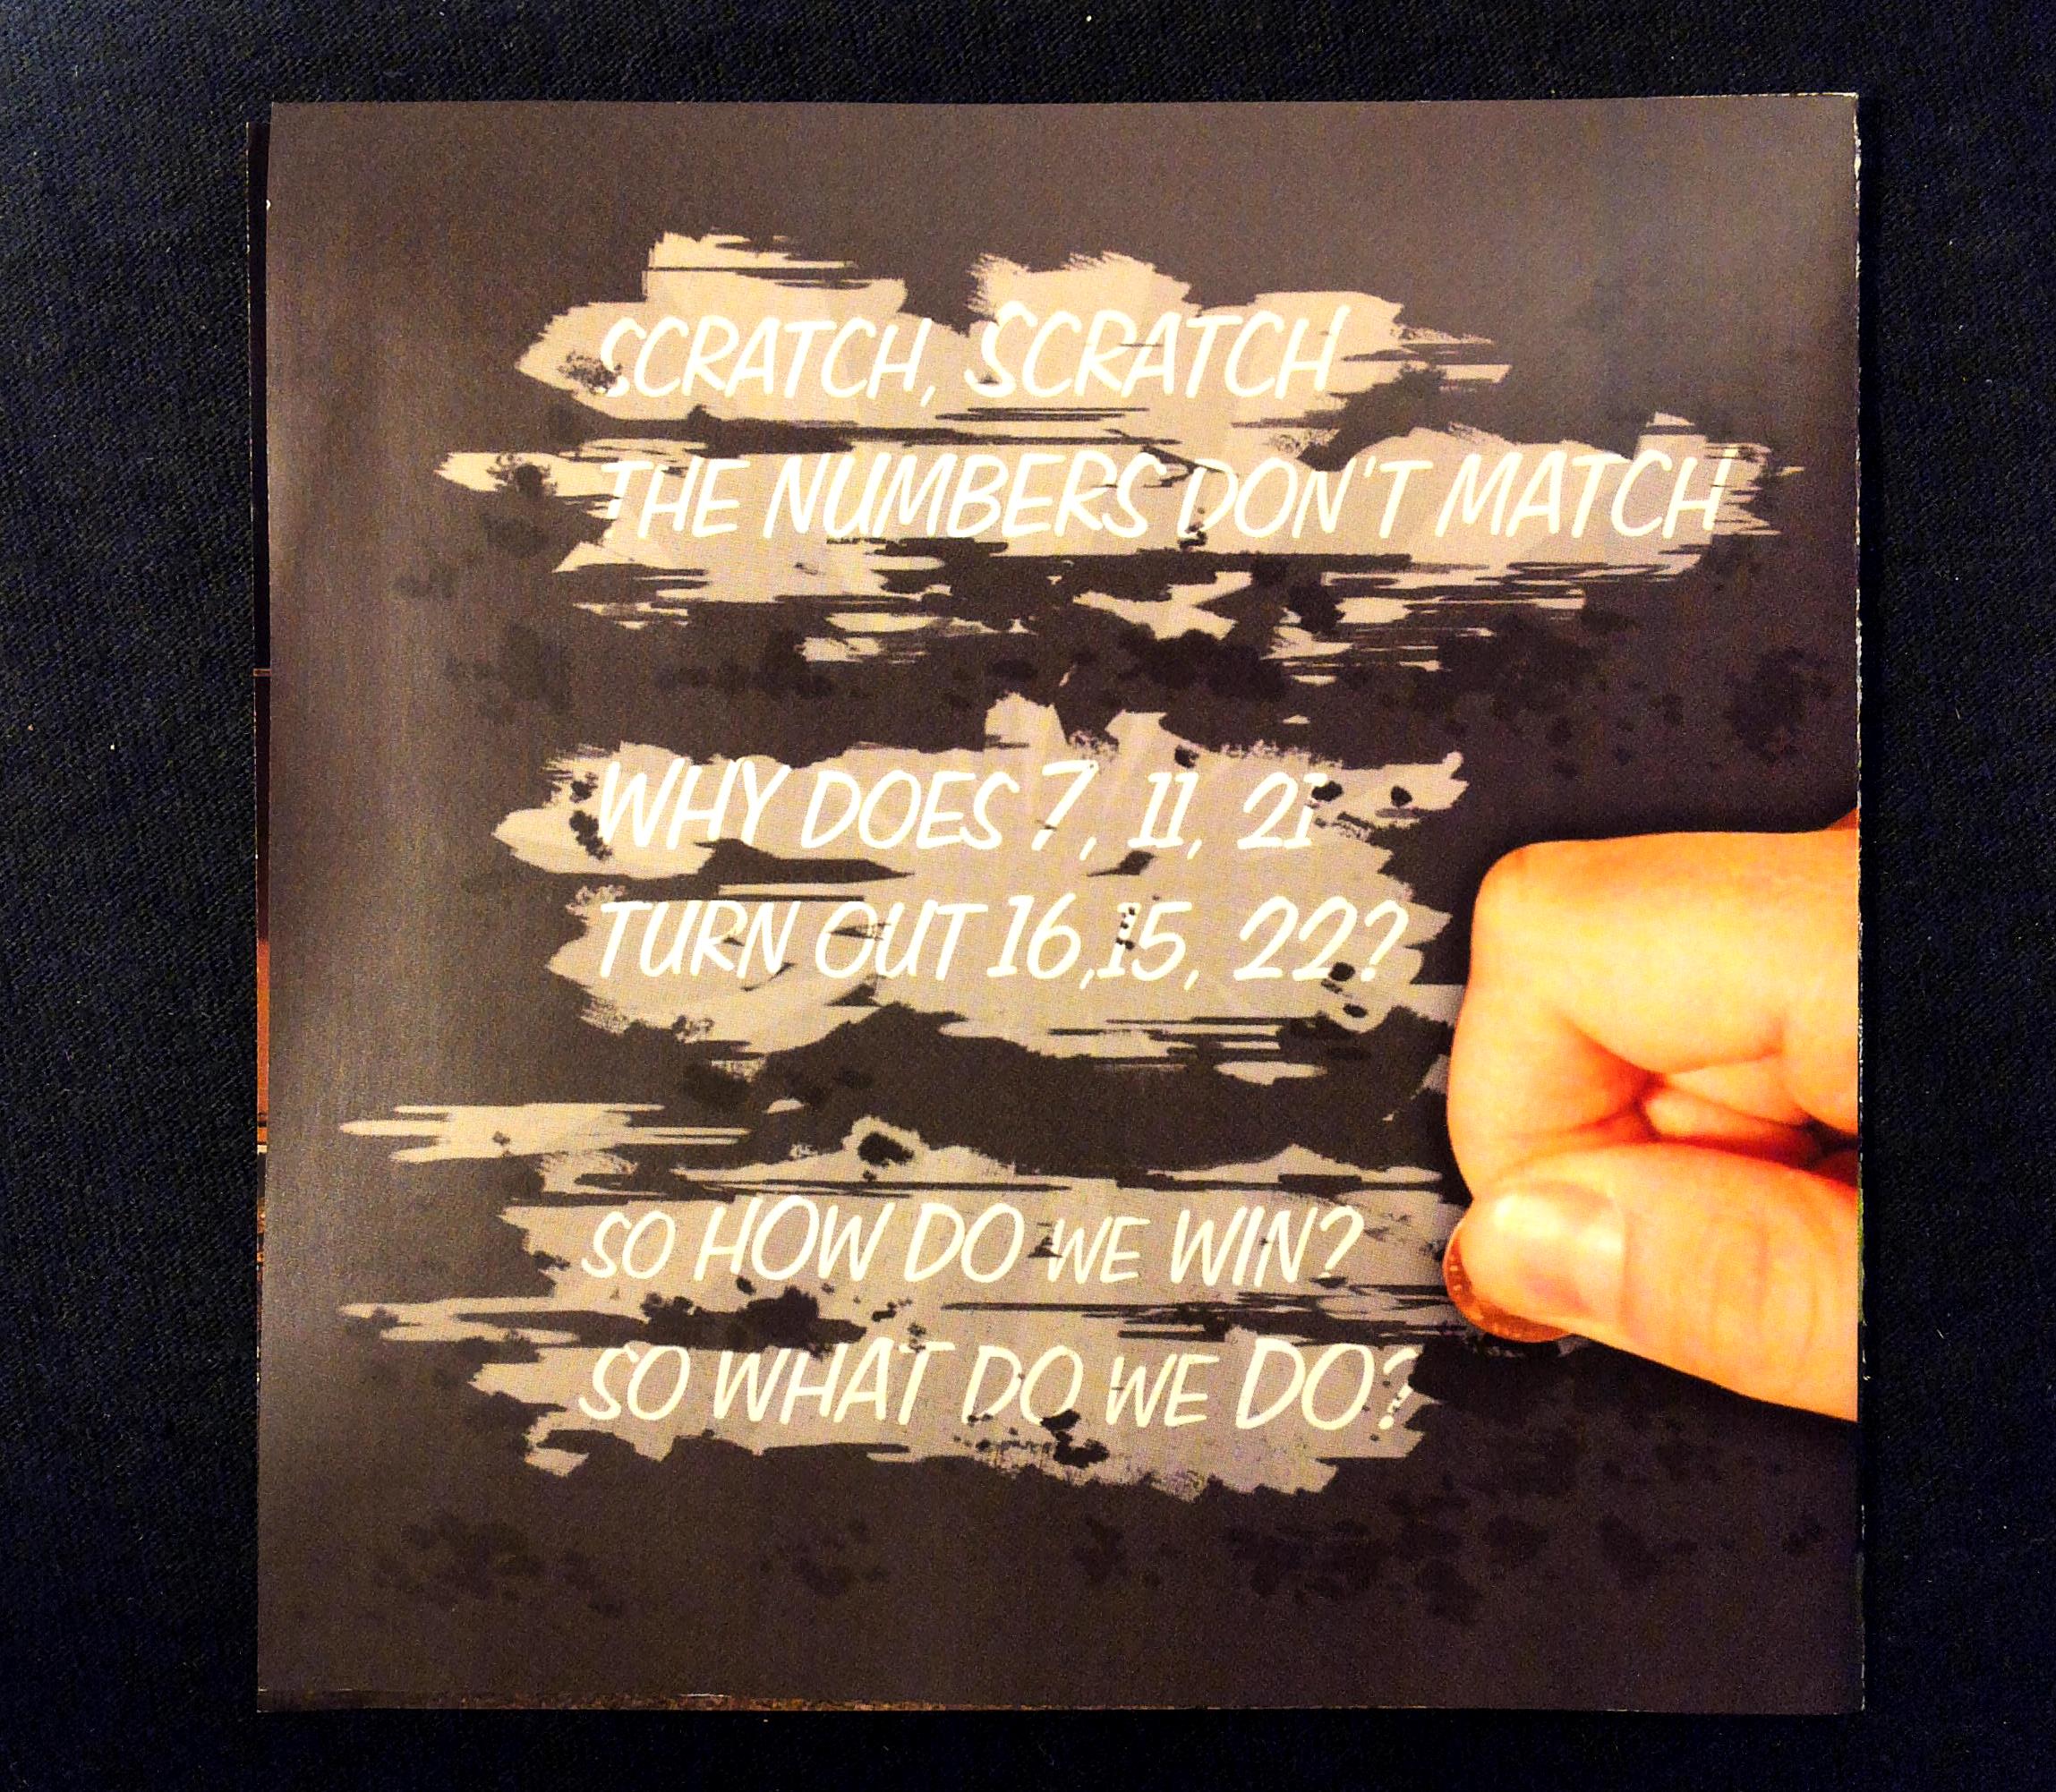 SCRATCH, SCRATCH
THE NUMBERS DON'T MATCH
WHY DOES 7, 11, 21
TURN OUT 16,15, 22?
SO HOW DO WE WIN?
SO WHAT DO WE DO?